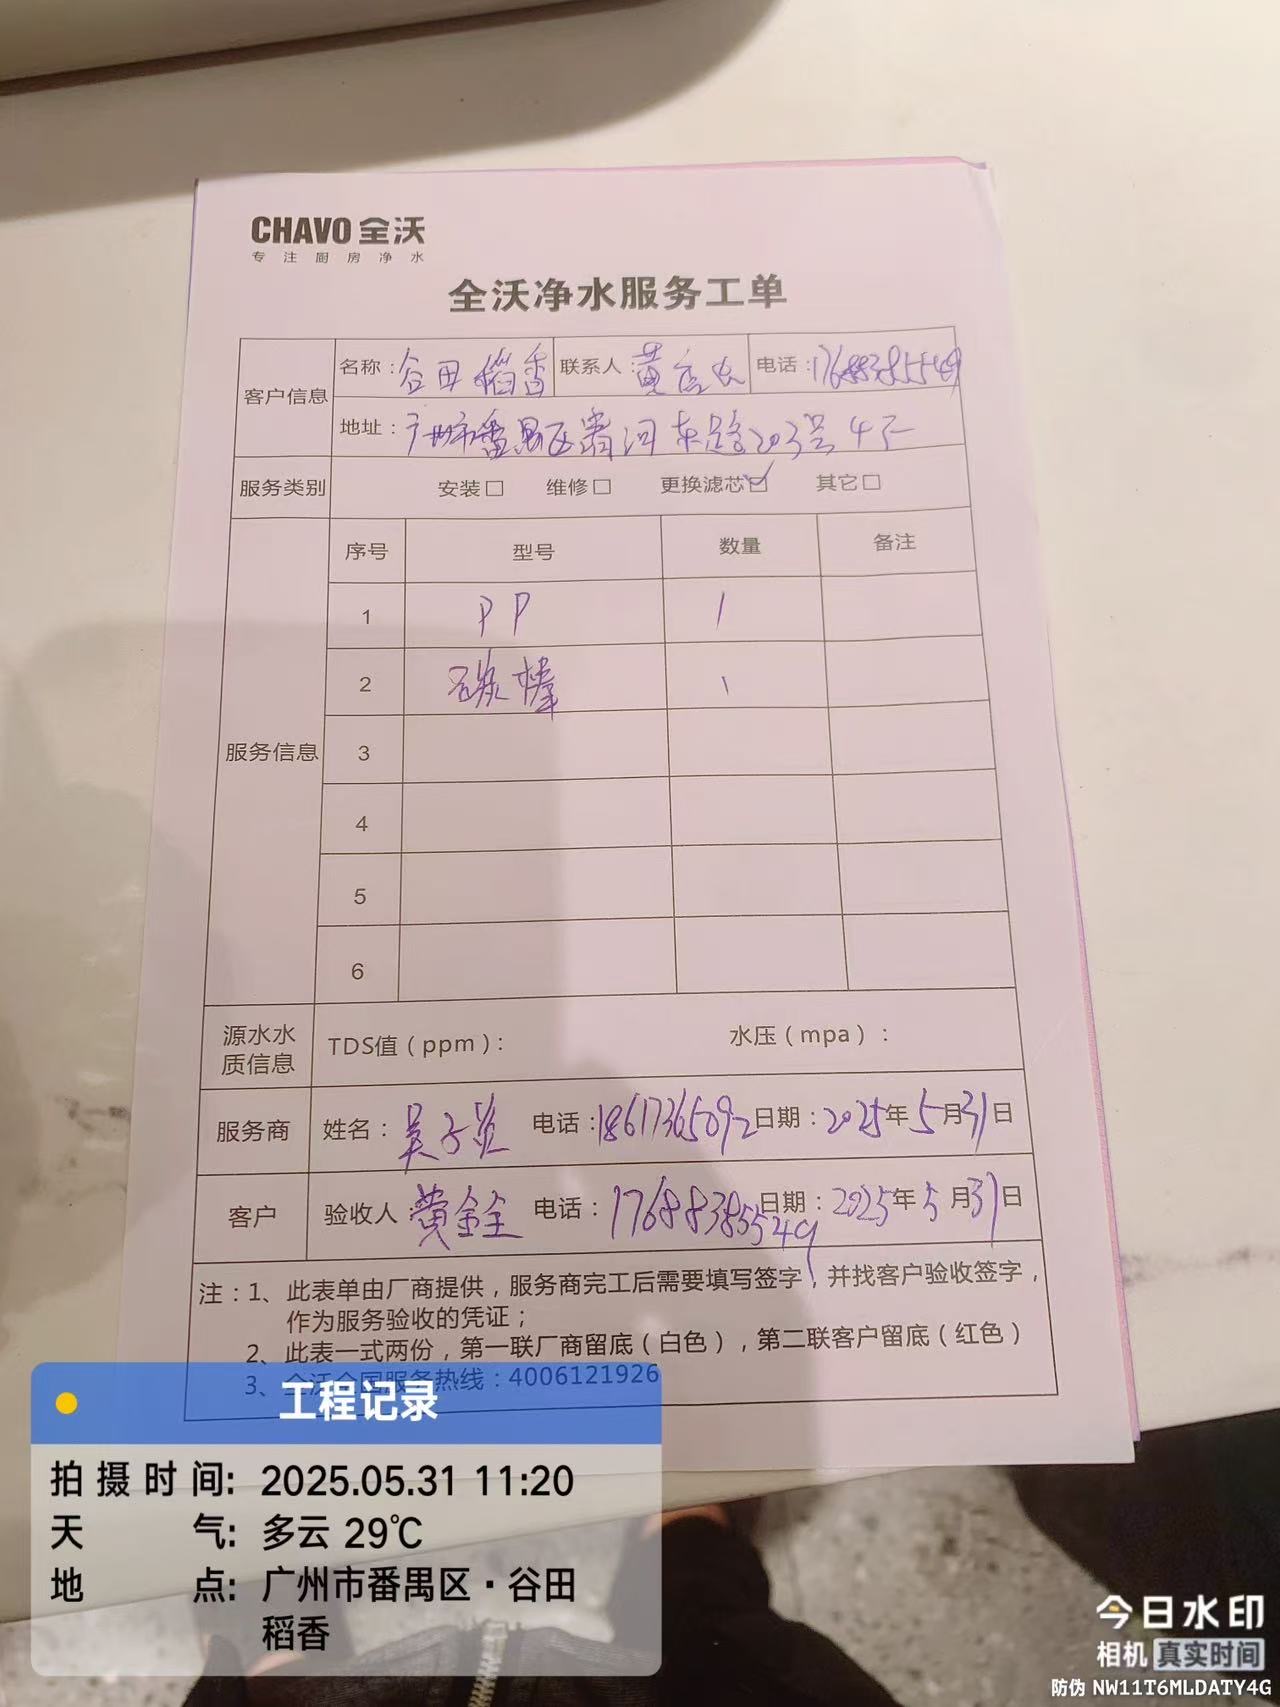 CHAVO 全沃
专注厨房净水
全沃净水服务工单
客户信息 名称：谷田稻香 联系人：黄 电话：17688385549
地址：广州市番禺区 河东路203号4
服务类别 安装□ 维修□ 更换滤芯☑ 其它□
服务信息 序号 型号 数量 备注
1 PP 1
2 碳棒 1
3
4
5
6
源水水质信息 TDS值（ppm）： 水压（mpa）：
服务商 姓名：吴子 电话：18617365092 日期：2025年5月31日
客户 验收人：黄金全 电话：17688385549 日期：2025年5月31日
注：1、此表单由厂商提供，服务商完工后需要填写签字，并找客户验收签字，
作为服务验收的凭证；
2、此表一式两份，第一联厂商留底（白色），第二联客户留底（红色）
3、全沃全国服务热线：4006121926
工程记录
拍摄时间: 2025.05.31 11:20
天气: 多云 29℃
地点: 广州市番禺区·谷田
稻香
今日水印
相机 真实时间
防伪 NW11T6MLDATY4G